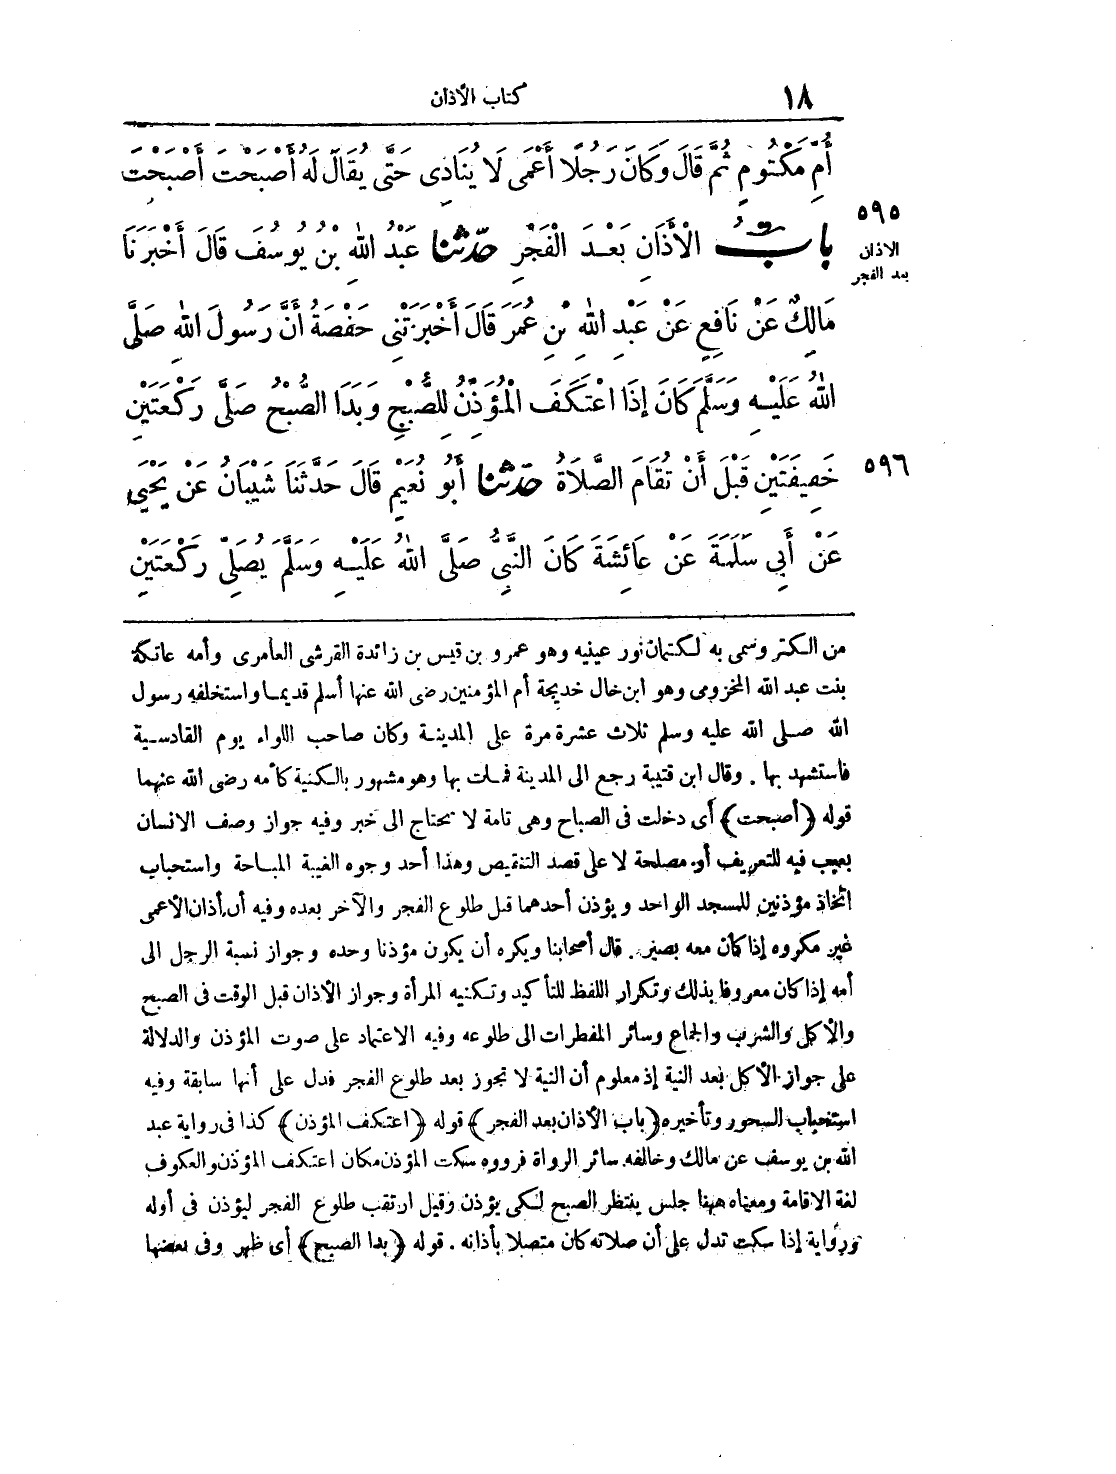 ١٨ كتاب الأذان
أُمِّ مَكْتُومٍ ثُمَّ قَالَ وَكَانَ رَجُلًا أَعْمَى لَا يُنَادِى حَتَّى يُقَالَ لَهُ أَصْبَحْتَ أَصْبَحْتَ
٥٩٥
الاذان
بعد الفجر
بابُ الْأَذَانِ بَعْدَ الْفَجْرِ حدّثنا عَبْدُ اللهِ بْنُ يُوسُفَ قَالَ أَخْبَرَنَا
مَالِكٌ عَنْ نَافِعٍ عَنْ عَبْدِ اللهِ بْنِ عُمَرَ قَالَ أَخْبَرَتْنِى حَفْصَةُ أَنَّ رَسُولَ اللهِ صَلَّى
اللهُ عَلَيْهِ وَسَلَّمَ كَانَ إِذَا اعْتَكَفَ الْمُؤَذِّنُ لِلصُّبْحِ وَبَدَا الصُّبْحُ صَلَّى رَكْعَتَيْنِ
٥٩٦ خَفِيفَتَيْنِ قَبْلَ أَنْ تُقَامَ الصَّلَاةُ حدّثنا أَبُو نُعَيْمٍ قَالَ حَدَّثَنَا شَيْبَانُ عَنْ يَحْيَى
عَنْ أَبِى سَلَمَةَ عَنْ عَائِشَةَ كَانَ النَّبِىُّ صَلَّى اللهُ عَلَيْهِ وَسَلَّمَ يُصَلِّى رَكْعَتَيْنِ
من الكتم وسمى به لكتمان نور عينيه وهو عمرو بن قيس بن زائدة القرشى العامرى وأمه عاتكة
بنت عبد الله المخزومى وهو ابن خال خديجة أم المؤمنين رضى الله عنها أسلم قديما واستخلفه رسول
الله صلى الله عليه وسلم ثلاث عشرة مرة على المدينة وكان صاحب اللواء يوم القادسية
فاستشهد بها . وقال ابن قتيبة رجع الى المدينة فمات بها وهو مشهور بالكنية كأمه رضى الله عنهما
قوله (أصبحت) أى دخلت فى الصباح وهى تامة لا يحتاج الى خبر وفيه جواز وصف الانسان
بعيب فيه للتعريف أو مصلحة لا على قصد التنقيص وهذا أحد وجوه الغيبة المباحة واستحباب
اتخاذ مؤذنين للمسجد الواحد ويؤذن أحدهما قبل طلوع الفجر والآخر بعده وفيه أن أذان الأعمى
غير مكروه إذا كان معه بصير . قال أصحابنا ويكره أن يكون مؤذنا وحده وجواز نسبة الرجل الى
أمه إذا كان معروفا بذلك وتكرار اللفظ للتأكيد وتكنيه المرأة وجواز الأذان قبل الوقت فى الصبح
والأكل والشرب والجماع وسائر المفطرات الى طلوعه وفيه الاعتماد على صوت المؤذن والدلالة
على جواز الأكل بعد النية إذ معلوم أن النية لا تجوز بعد طلوع الفجر فدل على أنها سابقة وفيه
استحباب السحور وتأخيره (باب الأذان بعد الفجر) قوله (اعتكف المؤذن) كذا فى رواية عبد
الله بن يوسف عن مالك وخالفه سائر الرواة فرووه سكت المؤذن مكان اعتكف المؤذن والعكوف
لغة الاقامة ومعناه ههنا جلس ينتظر الصبح لكى يؤذن وقيل ارتقب طلوع الفجر ليؤذن فى أوله
ورواية إذا سكت تدل على أن صلاته كان متصلا بأذانه . قوله (بدا الصبح) أى ظهر وفى بعضها